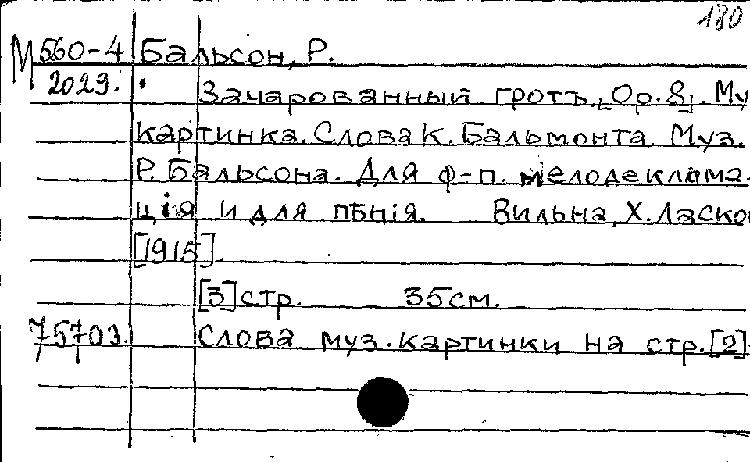 180
М 560-4 Бальсон, Р.
2029.
Зачарованный гротъ. [Ор. 8]. Му
картинка. Слова К. Бальмонта. Муз.
Р. Бальсона. Для ф-п. мелодеклама-
ція и для пѣнія. Вильна, Х. Ласко
[1915].
[3] стр. 35 см.
75703. Слова муз. картинки на стр. [2]